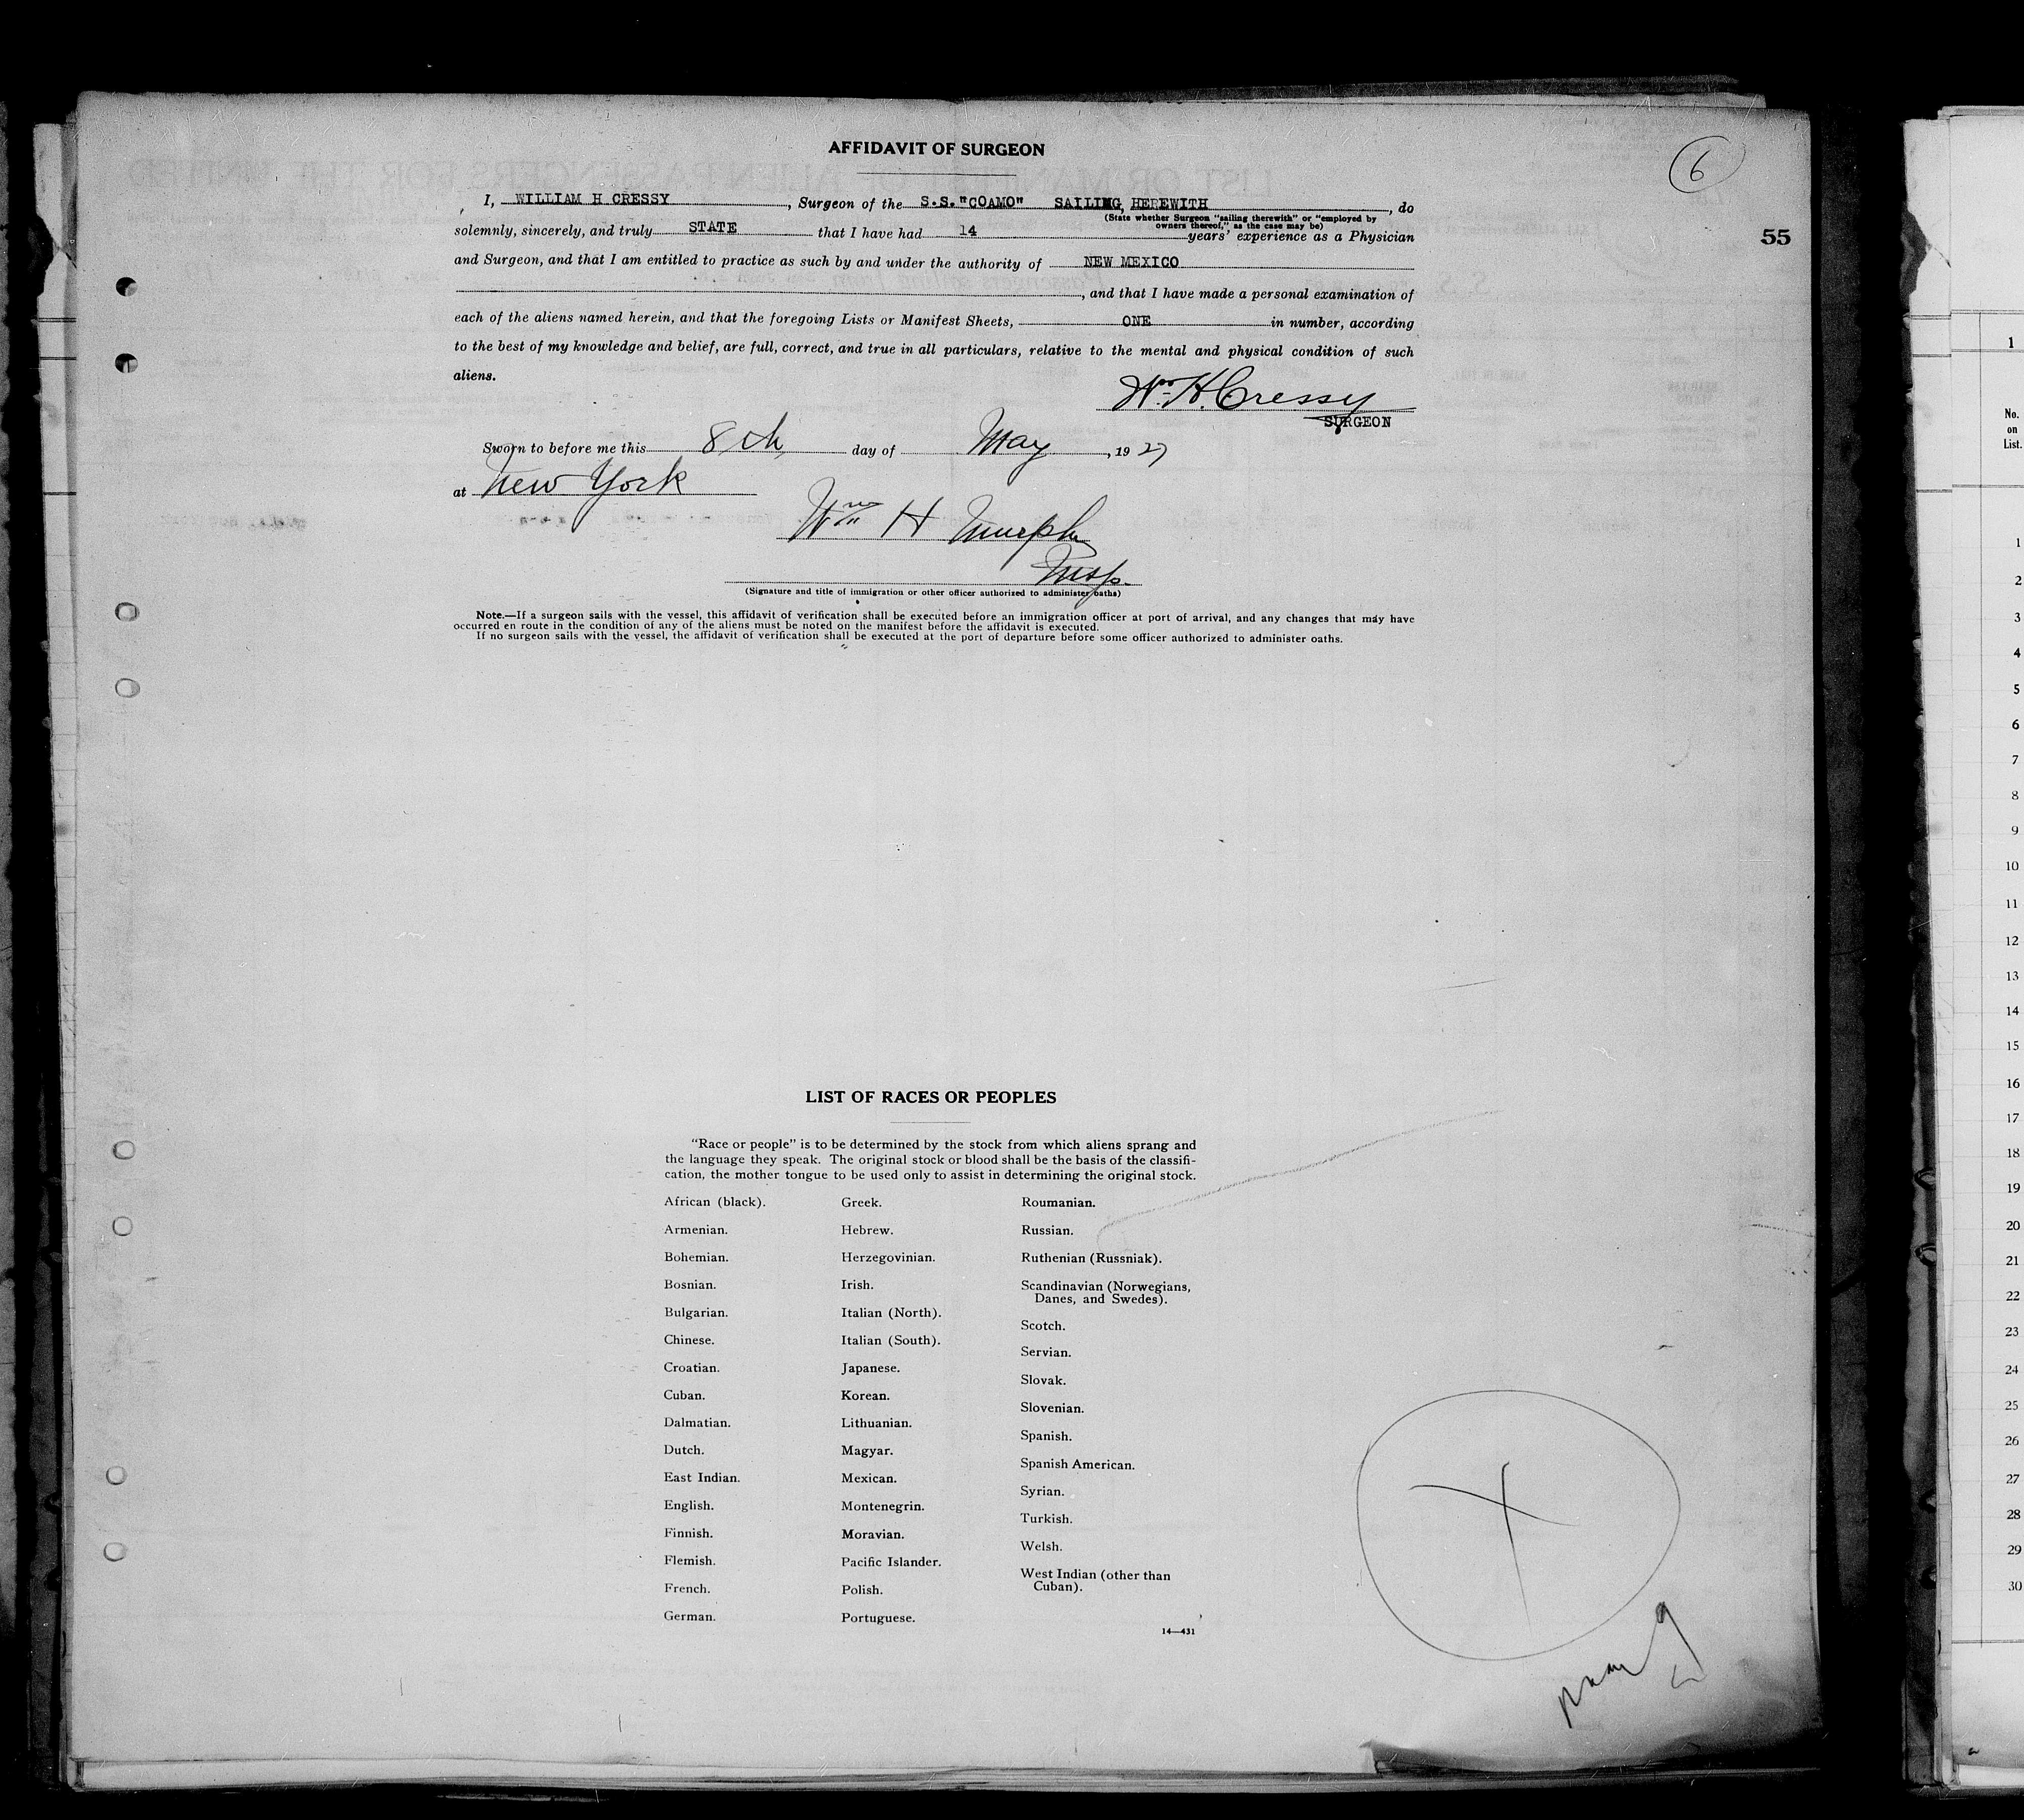 AFFIDAVIT OF SURGEON
6
55
I, WILLIAM H CRESSY, Surgeon of the S.S."COAMO" SAILING HEREWITH, do
(State whether Surgeon "sailing therewith" or "employed by
owners thereof," as the case may be)
solemnly, sincerely, and truly STATE that I have had 14 years' experience as a Physician
and Surgeon, and that I am entitled to practice as such by and under the authority of NEW MEXICO
, and that I have made a personal examination of
each of the aliens named herein, and that the foregoing Lists or Manifest Sheets, ONE in number, according
to the best of my knowledge and belief, are full, correct, and true in all particulars, relative to the mental and physical condition of such
aliens.
Wm. H. Cressy
SURGEON
Sworn to before me this 8th day of May, 1927
at New York
Wm H Murphy
Insp.
(Signature and title of immigration or other officer authorized to administer oaths)
Note.—If a surgeon sails with the vessel, this affidavit of verification shall be executed before an immigration officer at port of arrival, and any changes that may have
occurred en route in the condition of any of the aliens must be noted on the manifest before the affidavit is executed.
If no surgeon sails with the vessel, the affidavit of verification shall be executed at the port of departure before some officer authorized to administer oaths.
LIST OF RACES OR PEOPLES
"Race or people" is to be determined by the stock from which aliens sprang and
the language they speak. The original stock or blood shall be the basis of the classifi-
cation, the mother tongue to be used only to assist in determining the original stock.
African (black).
Armenian.
Bohemian.
Bosnian.
Bulgarian.
Chinese.
Croatian.
Cuban.
Dalmatian.
Dutch.
East Indian.
English.
Finnish.
Flemish.
French.
German.
Greek.
Hebrew.
Herzegovinian.
Irish.
Italian (North).
Italian (South).
Japanese.
Korean.
Lithuanian.
Magyar.
Mexican.
Montenegrin.
Moravian.
Pacific Islander.
Polish.
Portuguese.
Roumanian.
Russian.
Ruthenian (Russniak).
Scandinavian (Norwegians,
Danes, and Swedes).
Scotch.
Servian.
Slovak.
Slovenian.
Spanish.
Spanish American.
Syrian.
Turkish.
Welsh.
West Indian (other than
Cuban).
14—431
1
No.
on
List.
1
2
3
4
5
6
7
8
9
10
11
12
13
14
15
16
17
18
19
20
21
22
23
24
25
26
27
28
29
30